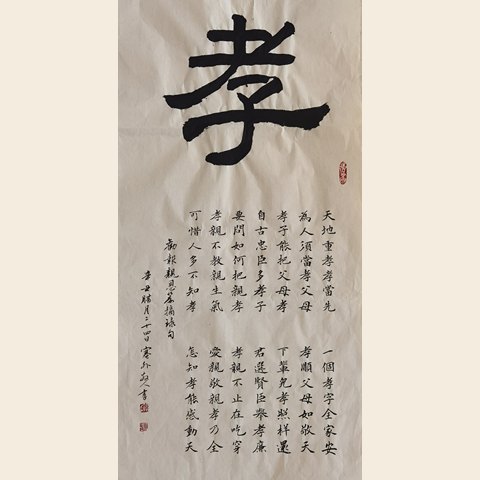 孝
天地重孝孝當先 一個孝字全家安
為人須當孝父母 孝順父母如敬天
孝子能把父母孝 下輩兒孝照樣還
自古忠臣多孝子 君選賢臣舉孝廉
要問如何把親孝 孝親不止在吃穿
孝親不教親生氣 愛親敬親孝乃全
可惜人多不知孝 怎知孝能感動天
勸報親恩篇摘錄句
辛丑腊月二十四日 人書